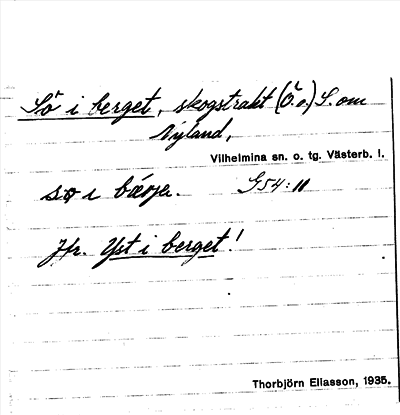 Sö i berget, skogstrakt (Ö.o.) S. om
Nyland,
Vilhelmina sn. o. tg. Västerb. l.
i G54:11
Jfr. Yst i berget!
Thorbjörn Eliasson, 1935.